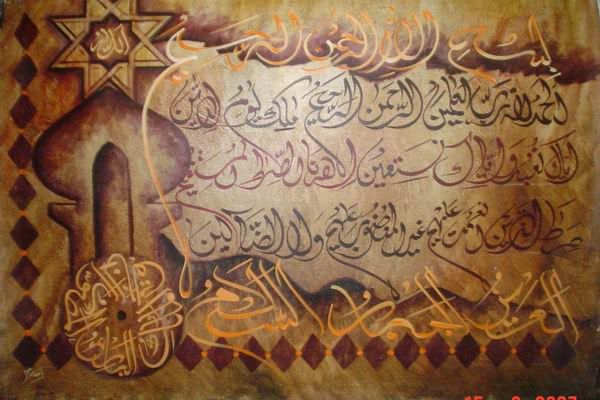 الله
بسم الله الرحمن الرحيم
الحمد لله رب العلمين الرحمن الرحيم ملك يوم الدين
اياك نعبد واياك نستعين اهدنا الصراط المستقيم
صراط الذين انعمت عليهم غير المغضوب عليهم ولا الضالين
العزيز الجبار السلام